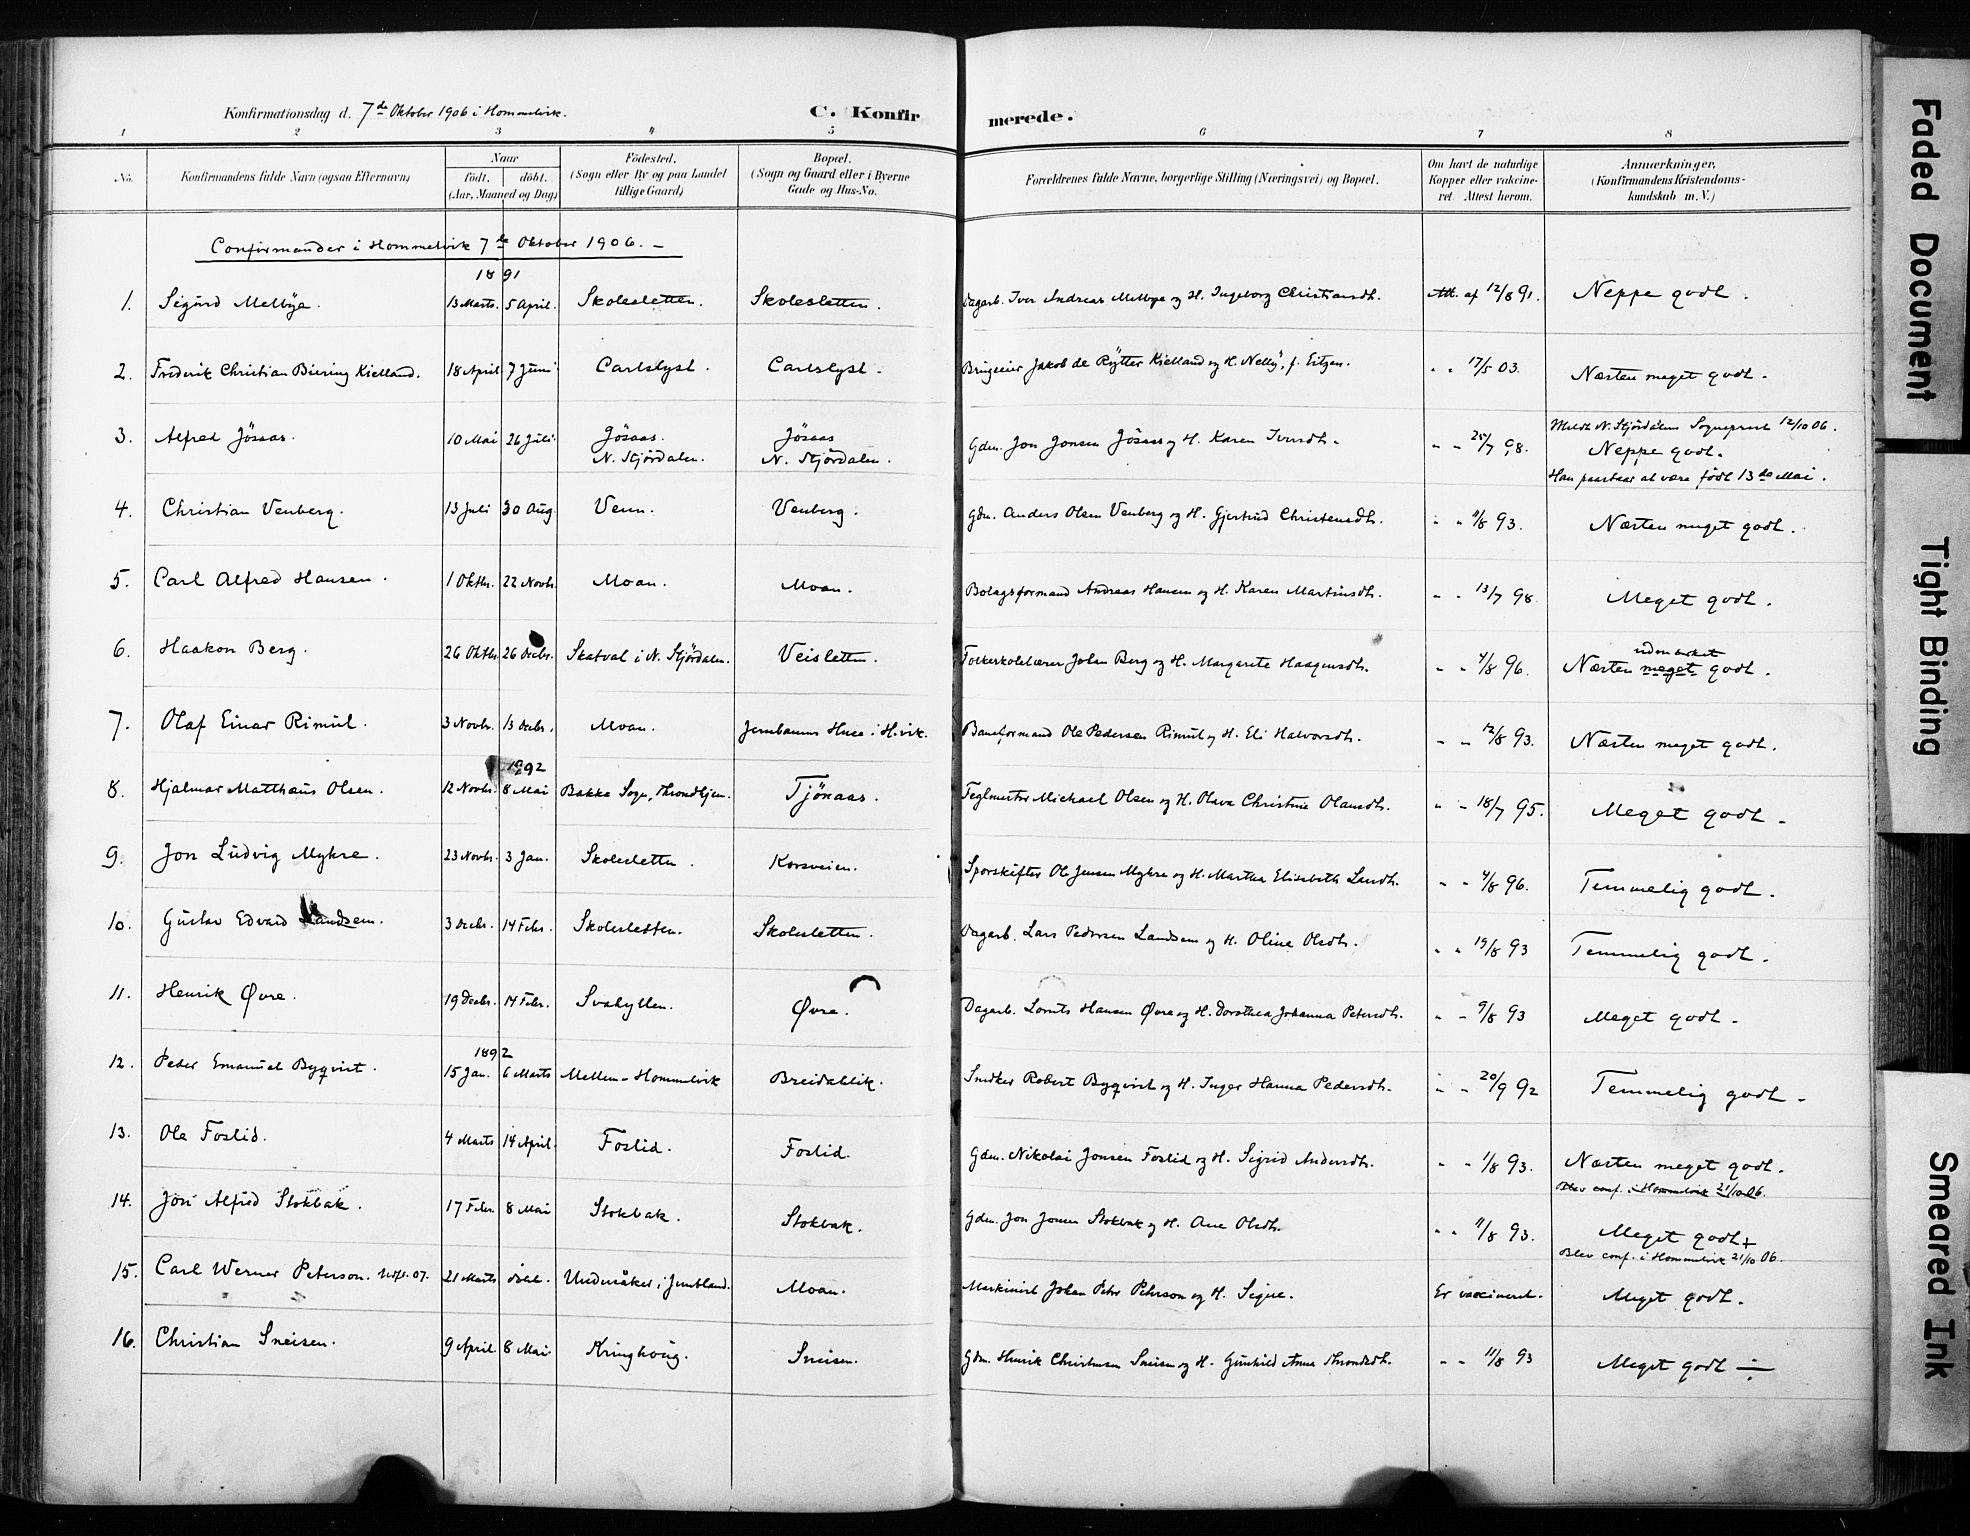 Konfirmationsdag d. 7de Oktober 1906 i Hommelvik.
C. Konfirmerede.
1 2 3 4 5 6 7 8
No. Konfirmandens fulde Navn (ogsaa Efternavn) Naar født. døbt. (Aar, Maaned og Dag) Fødested. (Sogn eller By og paa Landet tillige Gaard) Bopæl. (Sogn og Gaard eller i Byerne Gade og Hus-No. Forældrenes fulde Navne, borgerlige Stilling (Næringsvei) og Bopæl. Om havt de naturlige Kopper eller vakcineret. Attest herom. Anmærkninger. (Konfirmandens Kristendomskundskab m. V.)
Confirmander i Hommelvik 7de Oktober 1906. –
1891
1. Sigurd Melbye. 13 Marts. 5 April. Skolesletten. Skolesletten. Dagarb. Iver Andreas Melbye og H. Ingeborg Christiansdt. Att. af 12/8 91. Neppe godt.
2. Frederik Christian Biering Kielland. 18 April 7 Juni Carlslyst. Carlslyst. Brugseier Jakob de Rytter Kielland og H. Nelly, f. Eitzen. " " 17/5 03. Næsten meget godt.
3. Alfred Jösaas. 10 Mai 26 Juli. Jösaas. N. Stjördalen. Jösaas N. Stjördalen. Gdm. Jon Jonsen Jösaas og H. Karen Iversdt. " " 25/7 98. Meldt N. Stjördalens Sogneprest 12/10 06. Neppe godt.
Han paastaar at være født 13de Mai.
4. Christian Venberg. 13 Juli 30 Aug. Venn. Venberg. Gdm. Anders Olsen Venberg og H. Gjertrud Christensdt. " " 11/8 93. Næsten meget godt.
5. Carl Alfred Hansen. 1 Oktbr. 22 Novbr. Moan. Moan. Bolagsformand Andreas Hansen og H. Karen Martinsdt. " " 13/7 98. Meget godt.
6. Haakon Berg. 26 Oktbr. 26 Decbr. Skatval i N. Stjördalen. Veisletten. Folkeskolelærer Johan Berg og H. Margarete Haagensdt. " " 4/8 96. udmærket Næsten meget godt.
7. Olaf Einar Rimul. 3 Novbr. 13 Decbr. Moan. Jernbanens Huse i H.vik. Baneformand Ole Pedersen Rimul og H. Eli Halvorsdt. " " 12/8 93. Næsten meget godt.
1892
8. Hjalmar Matthæus Olsen. 12 Novbr. 8 Mai Bakke Sogn, Throndhjem. Tjönaas. Teglmester Michael Olsen og H. Olava Christine Olausdt. " " 18/7 95. Meget godt.
9. Jon Ludvig Myhre. 23 Novbr. 3 Jan. Skolesletten. Korsveien. Sporskifter Ole Jensen Myhre og H. Martha Elisabeth Larsdt. " " 4/8 96. Temmelig godt.
10. Gustav Edvard Landsem. 3 Decbr. 14 Febr. Skolesletten. Skolesletten. Dagarb. Lars Pedersen Landsem og H. Oline Olsdt. " " 19/8 93 Temmelig godt.
11. Henrik Øvre. 19 Decbr. 14 Febr. Svahyllen. Øvre. Dagarb. Lornts Hansen Øvre og H. Dorothea Johanna Petersdt. " " 9/8 93 Meget godt.
1892
12. Peder Emanuel Byqvist. 15 Jan. 6 Marts Mellem-Hommelvik Breidablik. Snedker Robert Byqvist og H. Inger Hanna Pedersdt. " " 20/9 92 Temmelig godt.
13. Ole Foslid. 4 Marts 14 April. Foslid. Foslid. Gdm. Nikolai Jonsen Foslid og H. Sigrid Andersdt. " " 11/8 93. Næsten meget godt.
Blev conf. i Hommelvik 21/10 06.
14. Jon Alfred Stokbak. 17 Febr. 8 Mai Stokbak. Stokbak. Gdm. Jon Jonsen Stokbak og H. Ane Olsdt. " " 11/8 93. Meget godt +
Blev conf. i Hommelvik 21/10 06.
15. Carl Werner Peterson. 07. 21 Marts döbt. Undersåker i Jemtland. Moan. Maskinist Johan Peter Peterson og H. Signe. Er vaccineret. Meget godt.
16. Christian Sneisen. 9 April 8 Mai. Kringhoug. Sneisen. Gdm. Henrik Christensen Sneisen og H. Gunhild Anna Throndsdt. " " 11/8 93 Meget godt ÷
Faded Document
Tight Binding
Smeared Ink